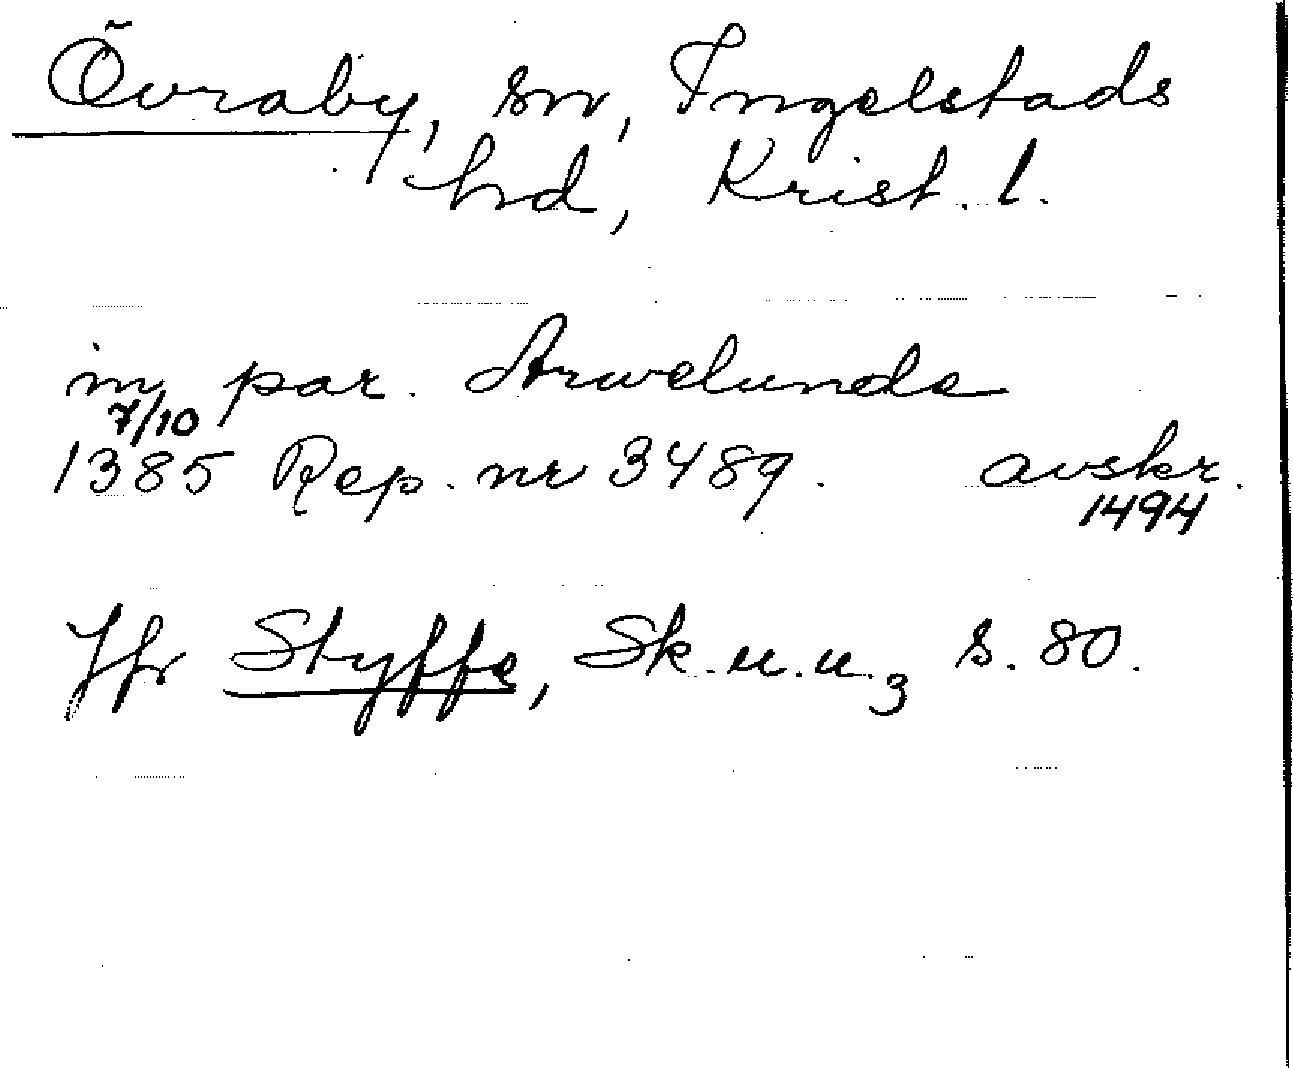 Övraby, sn, Ingelstads
hd, Krist. l.
in par. Arwelunde
7/10
1385 Rep. nr 3489. avskr.
1494
Jfr Styffe, Sk.u.u.3 s. 80.